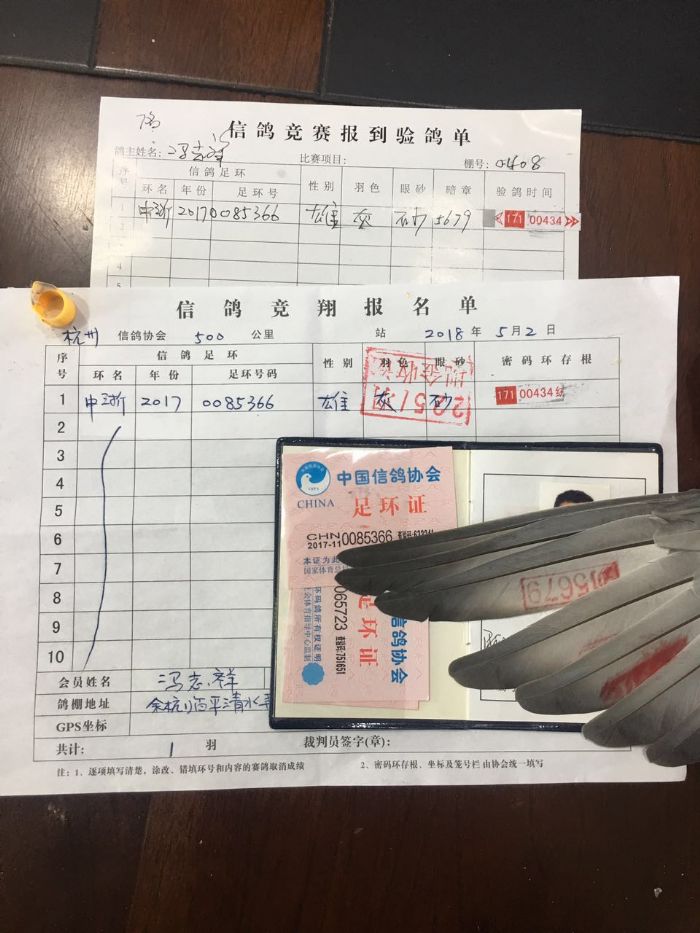 信鸽竞赛报到验鸽单
鸽主姓名: 冯志祥 比赛项目: 棚号: 0408
序号 信鸽足环 性别 羽色 眼砂 暗章 验鸽时间
环名 年份 足环号
1 中浙 2017 0085366 雄 灰 砂 5679 171 00434
2
3
4
5
信鸽竞翔报名单
杭州 信鸽协会 500 公里 站 2018 年 5 月 2 日
序号 信鸽足环 性别 羽色 眼砂 密码环存根
环名 年份 足环号码
1 中浙 2017 0085366 雄 灰 砂 171 00434
2
3
4
5
6
7
8
9
10
中国信鸽协会
CHINA
足环证
CHN 0085366
2017-11
本证为此
国家体育总
065723
查验码:751651
足环证
信鸽协会
环码鸽所有权证明
15679
会员姓名 冯志祥
鸽棚地址
GPS坐标
共计: 1 羽 裁判员签字(章):
注: 1、逐项填写清楚, 涂改、错填环号和内容的赛鸽取消成绩 2、密码环存根、坐标及笼号栏由协会统一填写